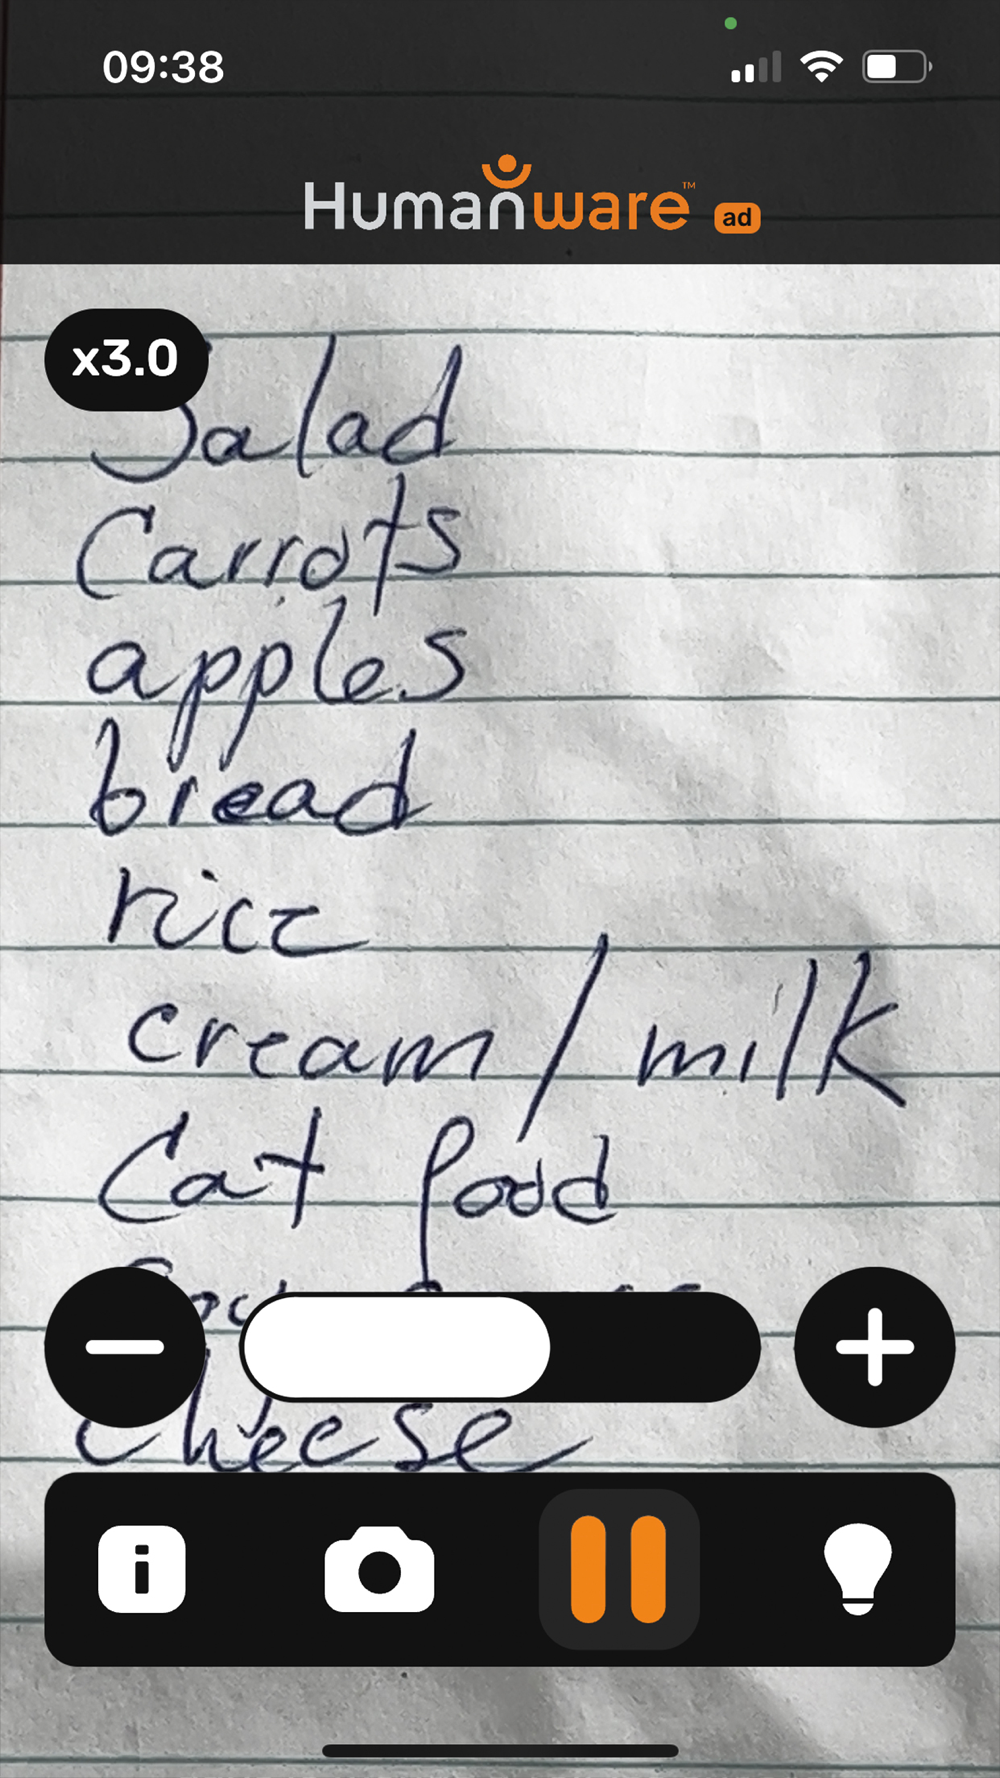 09:38
Humanware™ ad
x3.0
Salad
Carrots
apples
bread
rice
cream / milk
Cat food
cheese